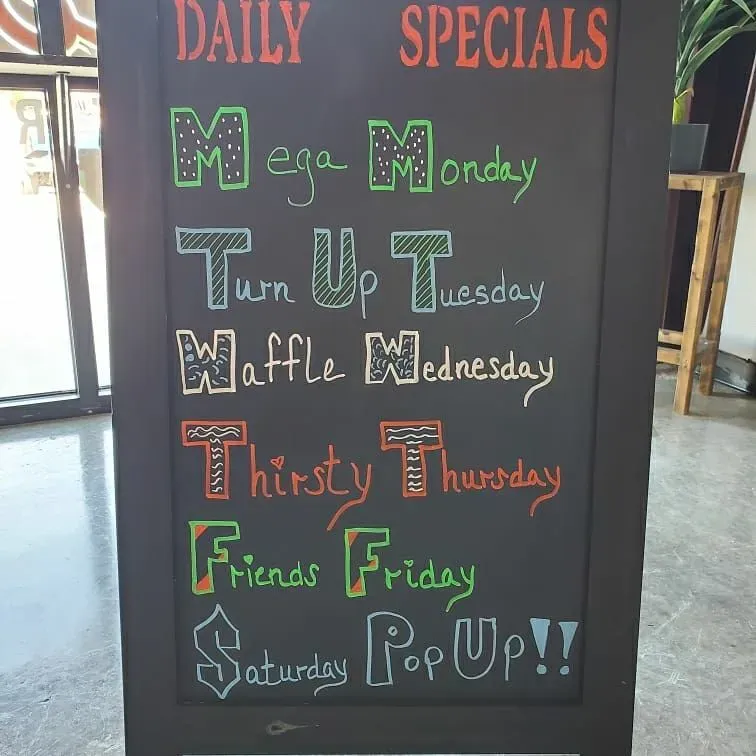 DAILY SPECIALS
Mega Monday
Turn Up Tuesday
Waffle Wednesday
Thirsty Thursday
Friends Friday
Saturday Pop Up!!